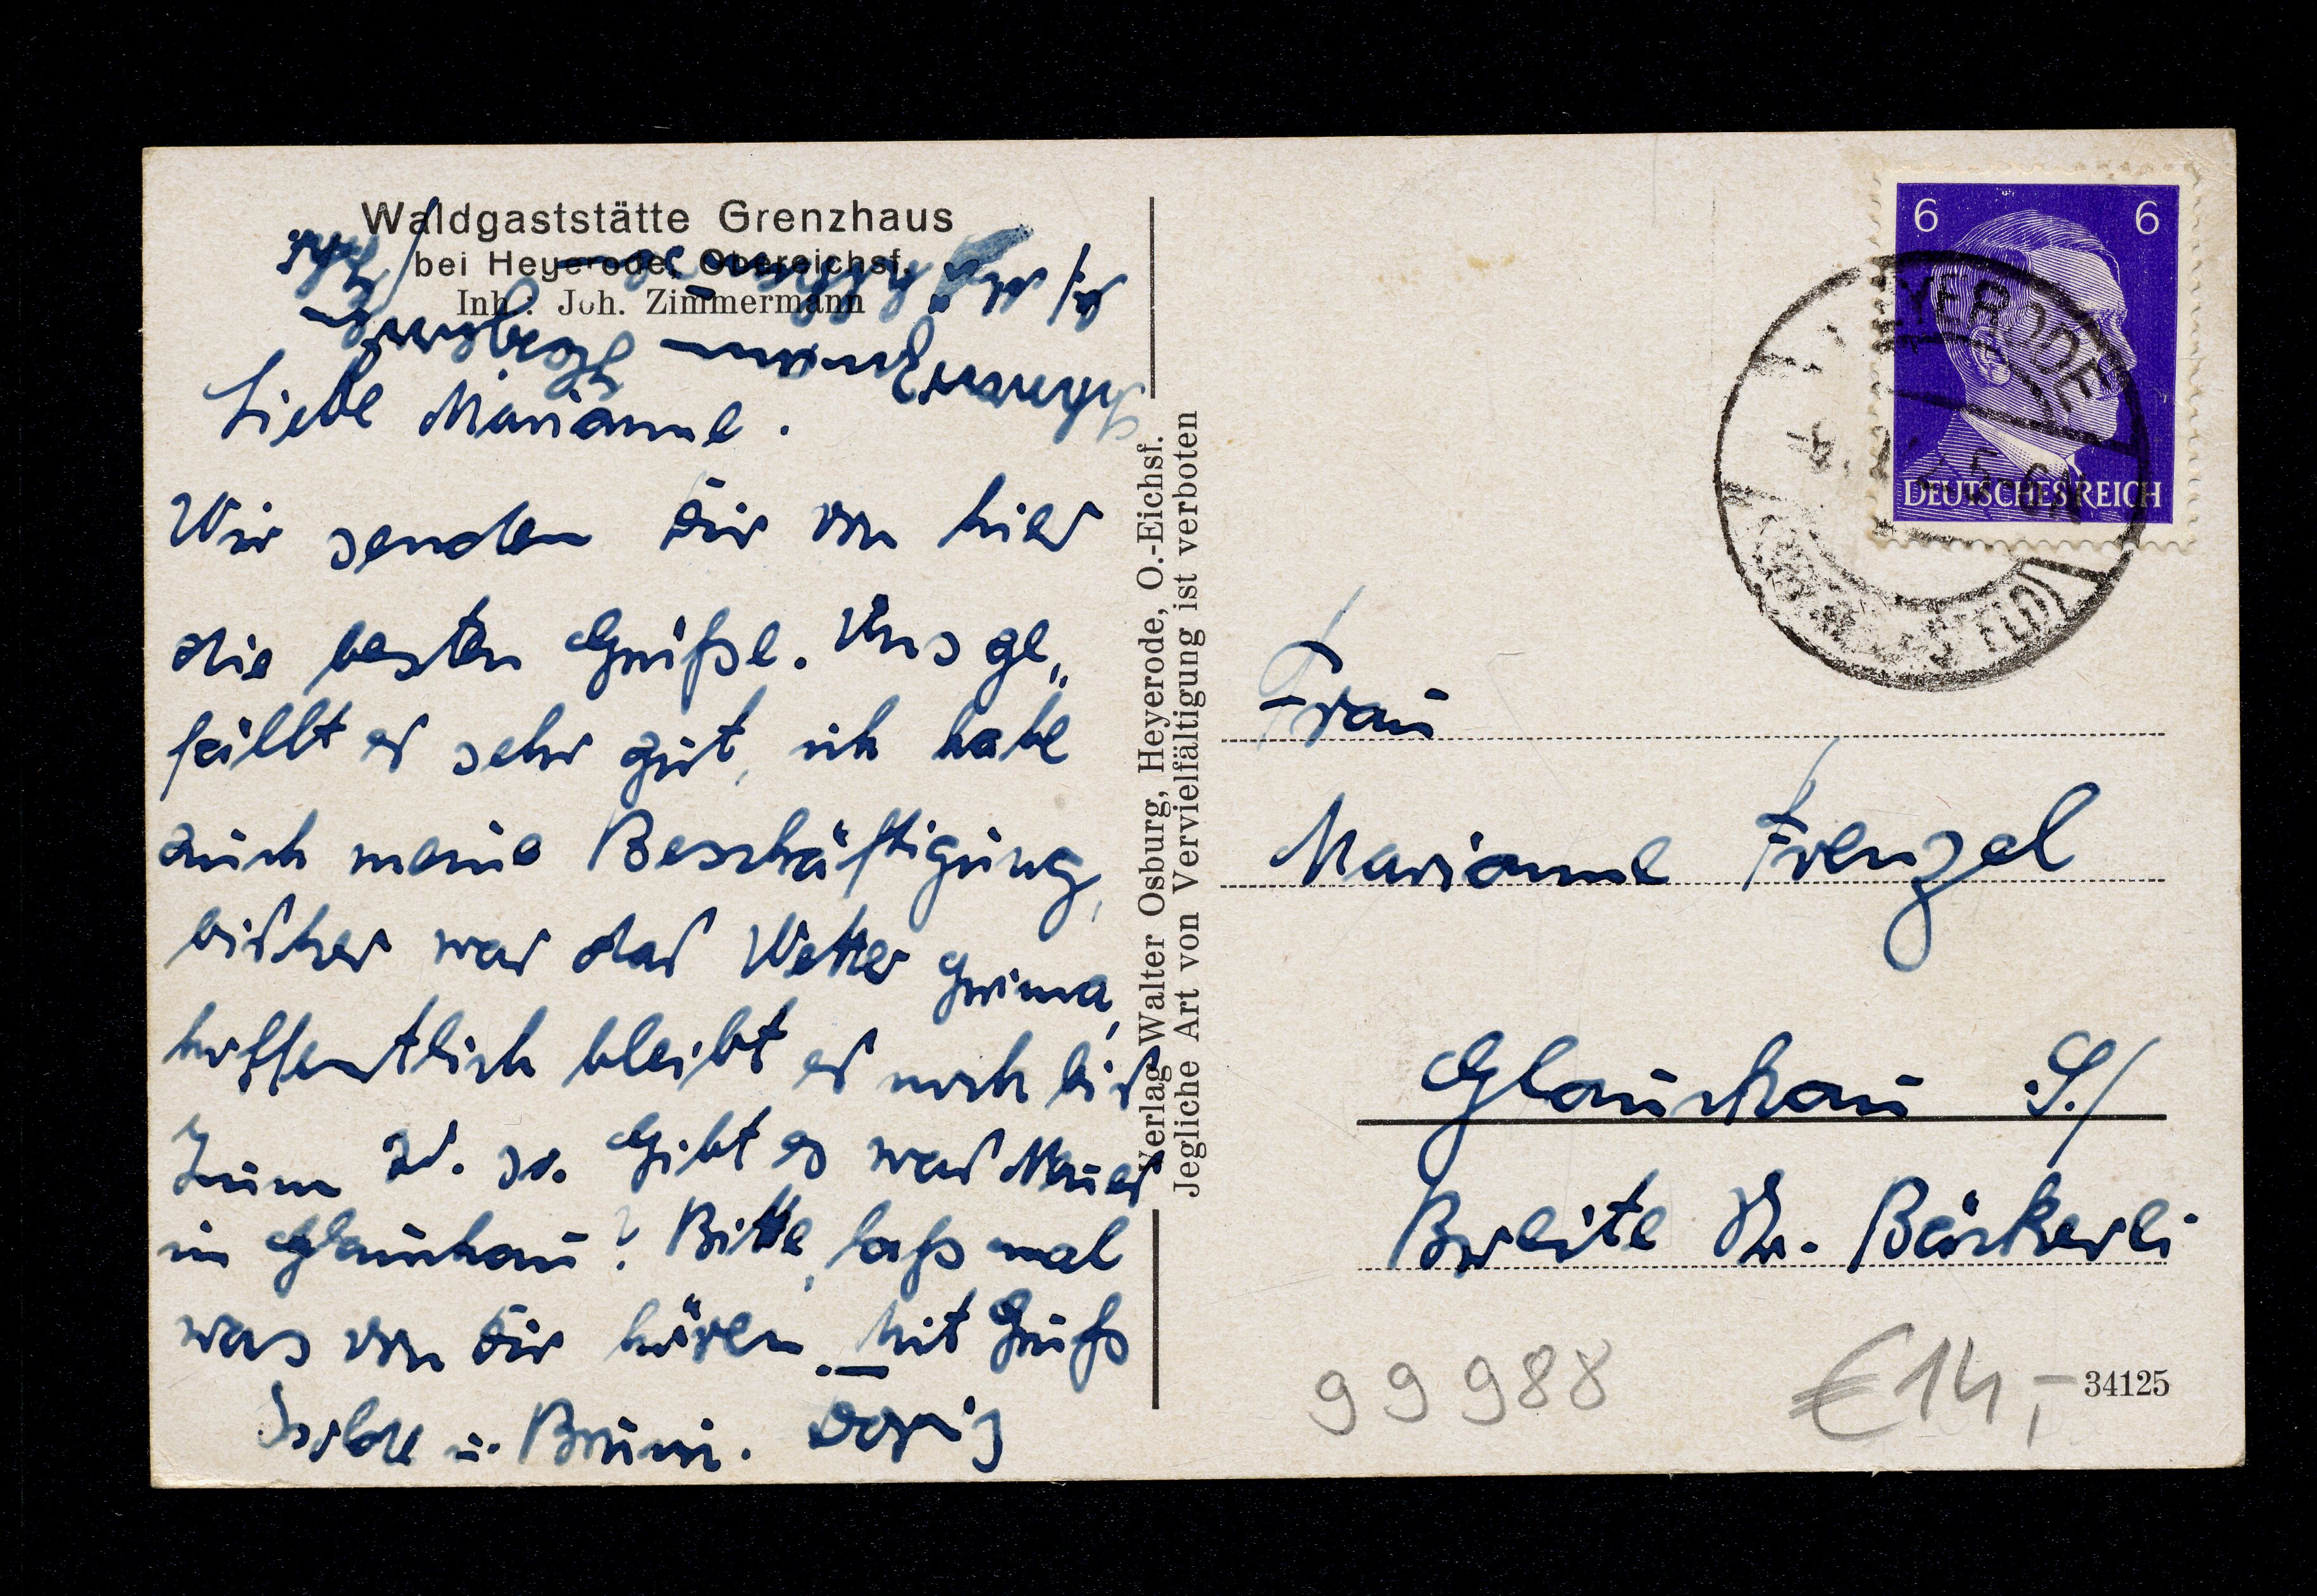 Waldgaststätte Grenzhaus
bei Heyerode, Obereichsf.
Inh.: Joh. Zimmermann
Liebe Marianne.
Wir senden Dir von hier
die besten Grüße. Uns ge„
fällt es sehr gut, ich habe
auch meine Beschäftigung,
bisher war das Wetter prima,
hoffentlich bleibt es noch bis
zum Gibt es was Neues
in Glauchau? Bitte, laß mal
was von Dir hören. Mit Gruß
u. Bruni.
Verlag Walter Osburg, Heyerode, O.-Eichsf.
Jegliche Art von Vervielfältigung ist verboten
6 6
DEUTSCHES REICH
HEYERODE
Frau
Marianne Frenzel
Glauchau S./
Breite Str. Bäckerei
99988
€14,-
34125